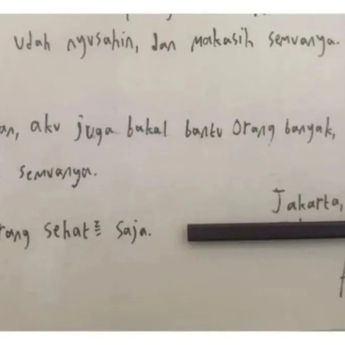 udah nyusahin, dan makasih semuanya.
an, aku juga bakal bantu orang banyak,
semuanya.
Jakarta,
rang sehat² saja.